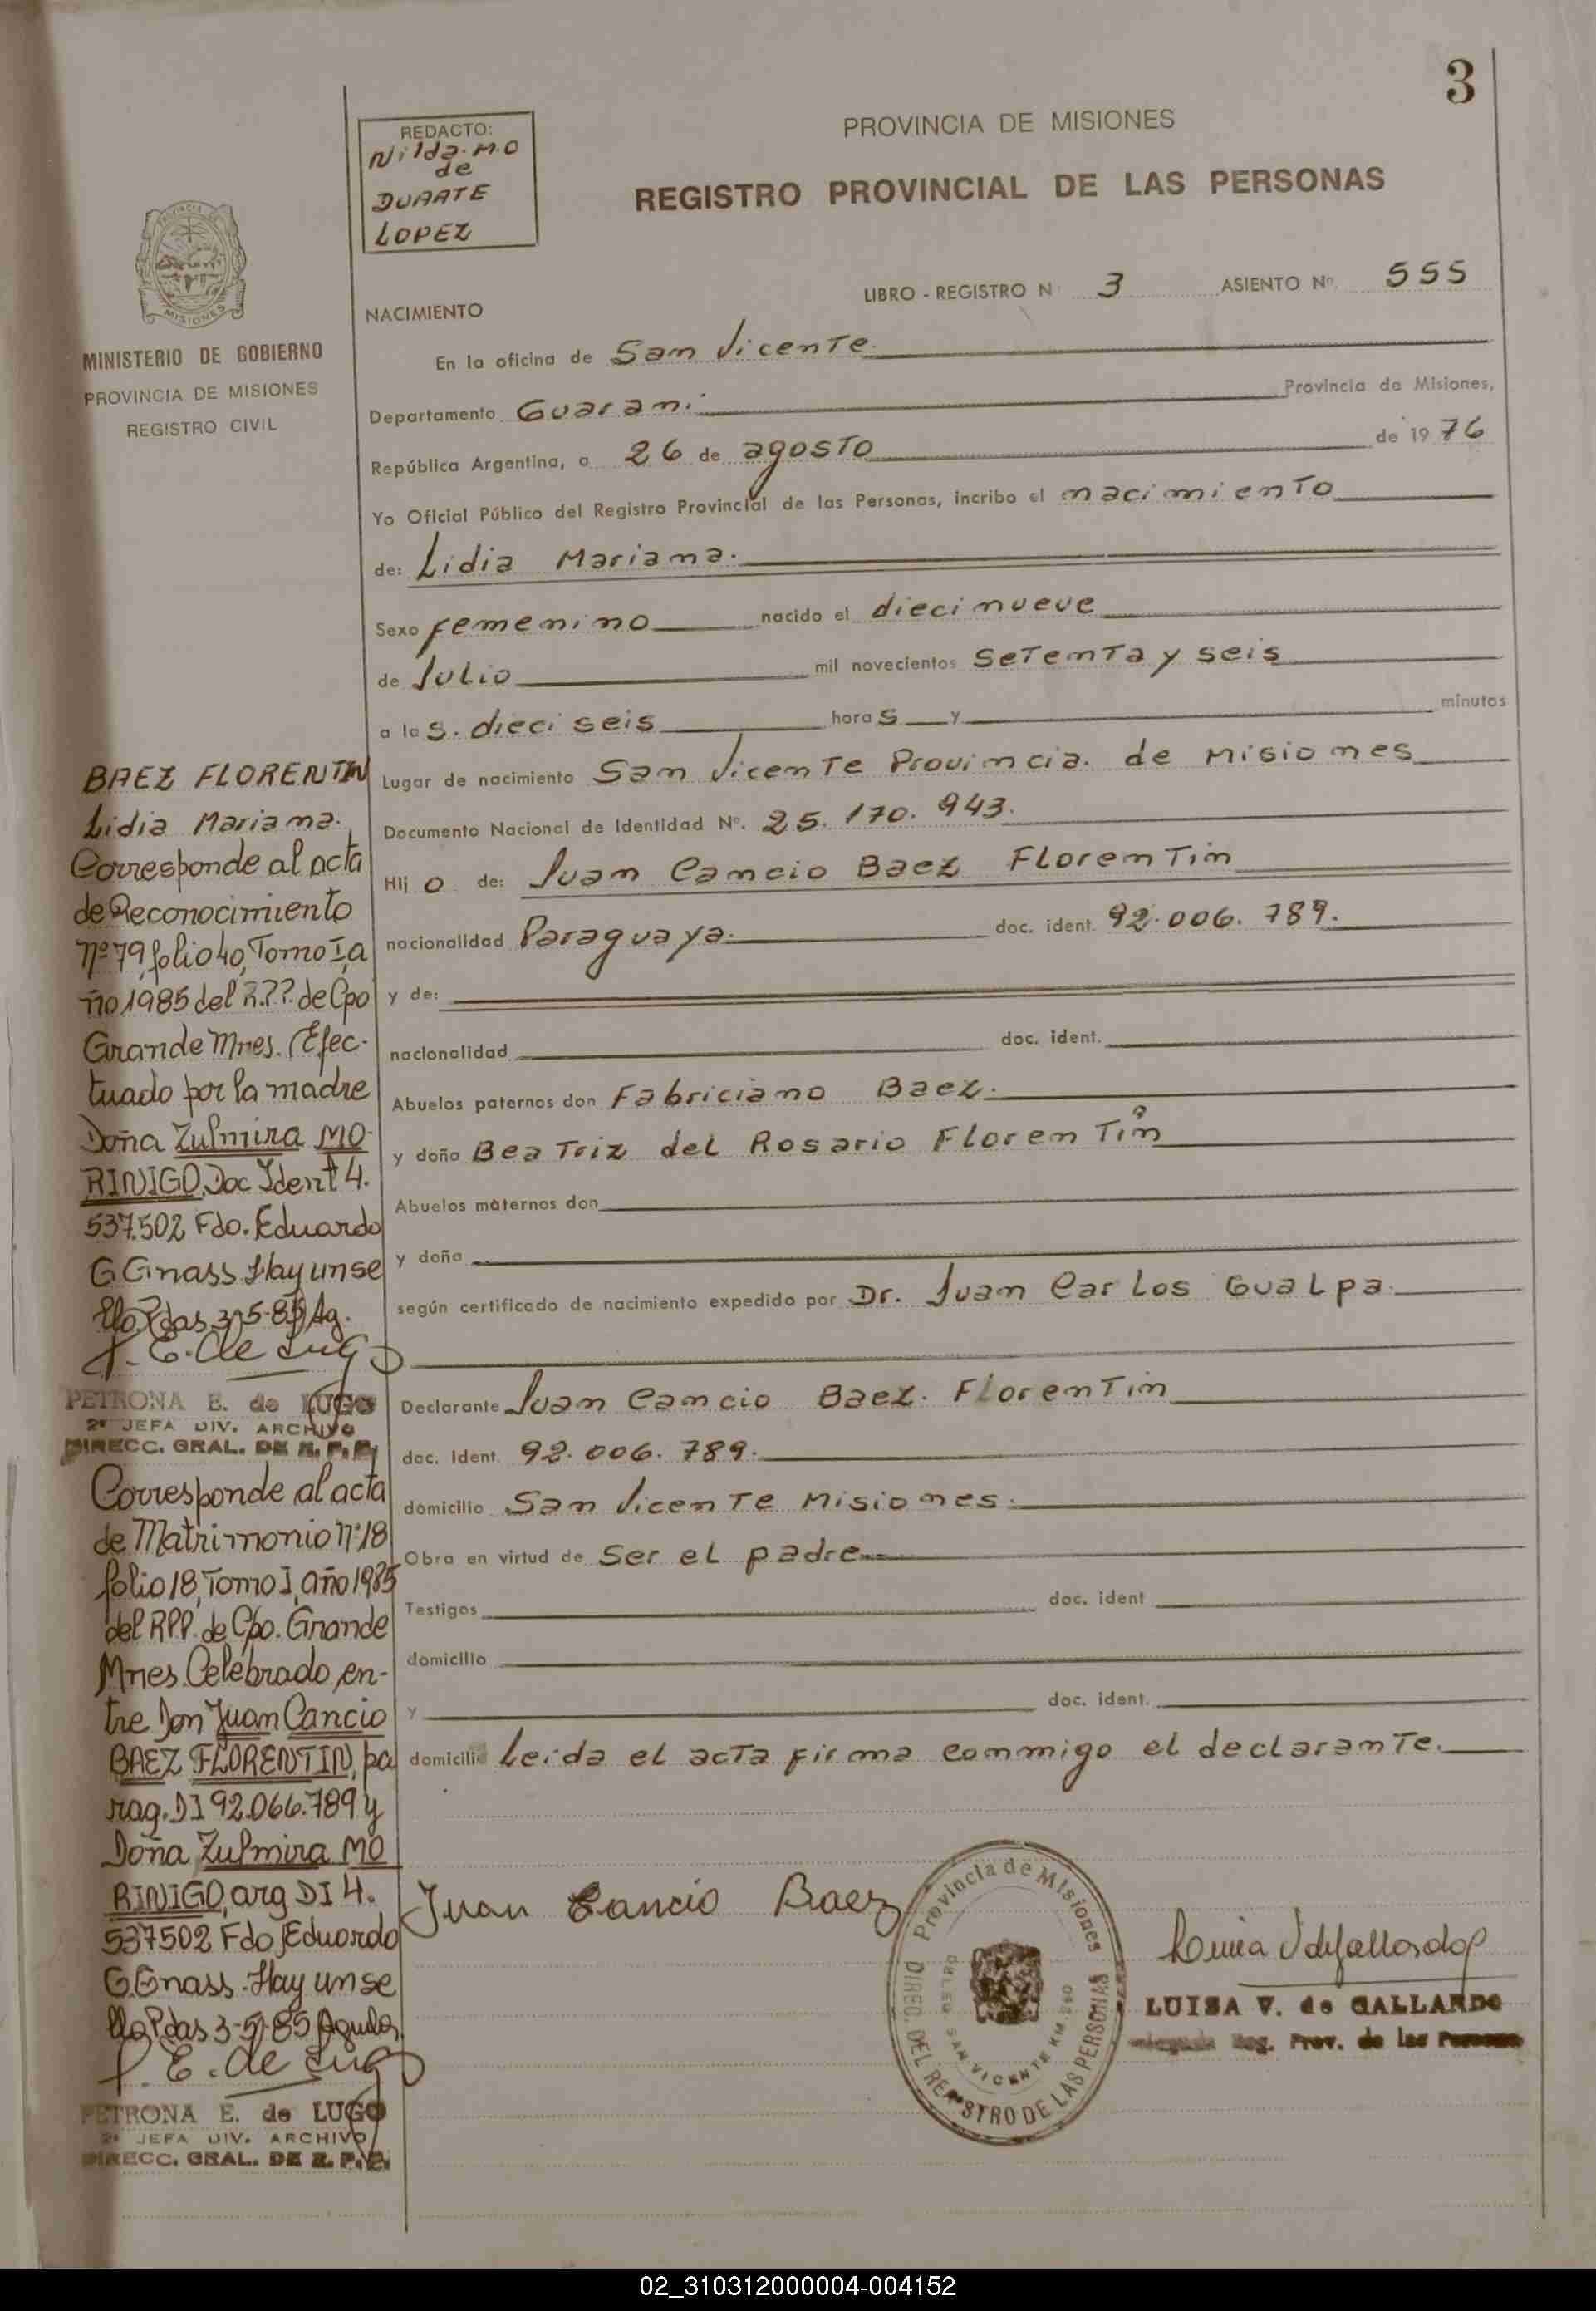 3
REDACTO:
Nilda. M. O
de
DUARTE
LOPEZ
PROVINCIA DE MISIONES
REGISTRO PROVINCIAL DE LAS PERSONAS
LIBRO - REGISTRO N 3 ASIENTO Nº 555
NACIMIENTO
En la oficina de San Vicente
Departamento Guarani Provincia de Misiones,
República Argentina, a 26 de agosto de 1976
Yo Oficial Público del Registro Provincial de las Personas, incribo el nacimiento
de: Lidia Mariana.
Sexo femenino nacido el diecinueve
de Julio mil novecientos setenta y seis
a las. dieci seis horas y minutos
Lugar de nacimiento San Vicente Provincia. de Misiones
Documento Nacional de Identidad Nº. 25. 170. 943.
Hijo de: Juan Cancio Baez Florentin
nacionalidad Paraguaya. doc. ident. 92.006. 789.
y de:
nacionalidad doc. ident.
Abuelos paternos don Fabriciano Baez.
y doña Beatriz del Rosario Florentin
Abuelos maternos don
y doña
según certificado de nacimiento expedido por Dr. Juan Carlos Gualpa.
Declarante Juan Cancio Baez. Florentin
doc. ident. 92. 006. 789.
domicilio San Vicente Misiones.
Obra en virtud de ser el padre
Testigos doc. ident
domicilio
y doc. ident.
domicilio Leida el acta firma conmigo el declarante.
Juan Cancio Baez
Provincia de Misiones
DIREC. DEL REGISTRO DE LAS PERSONAS
SAN VICENTE KM.
LUISA V. de GALLARDO
Reg. Prov. de las Personas
MISIONES
MINISTERIO DE GOBIERNO
PROVINCIA DE MISIONES
REGISTRO CIVIL
BAEZ FLORENTIN
Lidia Mariana.
Corresponde al acta
de Reconocimiento
nº 79, folio 40, Tomo I, a
ño 1985 del R.P.P. de Cpo
Grande Mnes. Efec-
tuado por la madre
Doña Zulmira MO
RINIGO, Doc Ident 4.
537.502 Fdo. Eduardo
G Gnass. Hay un se
llo Pdas 3-5-85 Ag.
PETRONA E. de LUGO
2ª JEFA DIV. ARCHIVO
DIRECC. GRAL. DE R. P. P.
Corresponde al acta
de Matrimonio nº 18
folio 18, Tomo I, año 1985
del RPP. de Cpo. Grande
Mnes. Celebrado en-
tre Don Juan Cancio
BAEZ FLORENTIN, pa
rag. DI 92.066.789 y
Doña Zulmira MO
RINIGO, arg DI 4.
537502 Fdo Eduardo
G. Gnass. Hay un se
llo Pdas 3-5-85
PETRONA E. de LUGO
2ª JEFA DIV. ARCHIVO
DIRECC. GRAL. DE R. P. P.
02_310312000004-004152